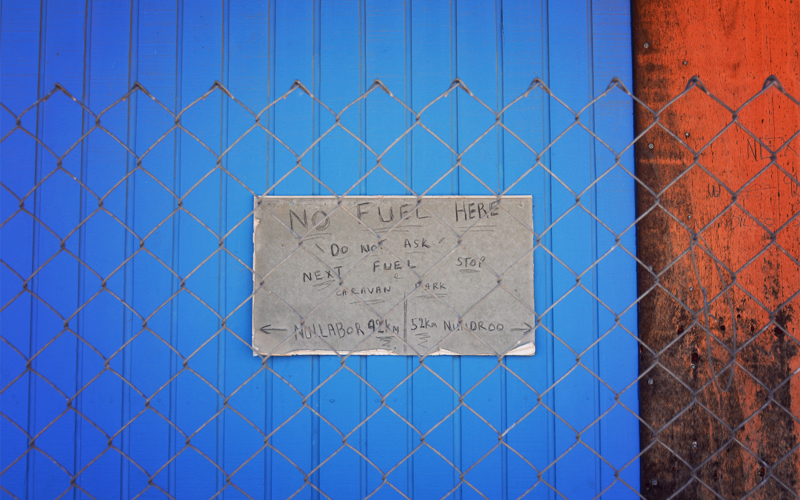 NO FUEL HERE
DO NOT ASK
NEXT FUEL STOP
CARAVAN PARK
← NULLABOR 92km 52km NUNDROO →